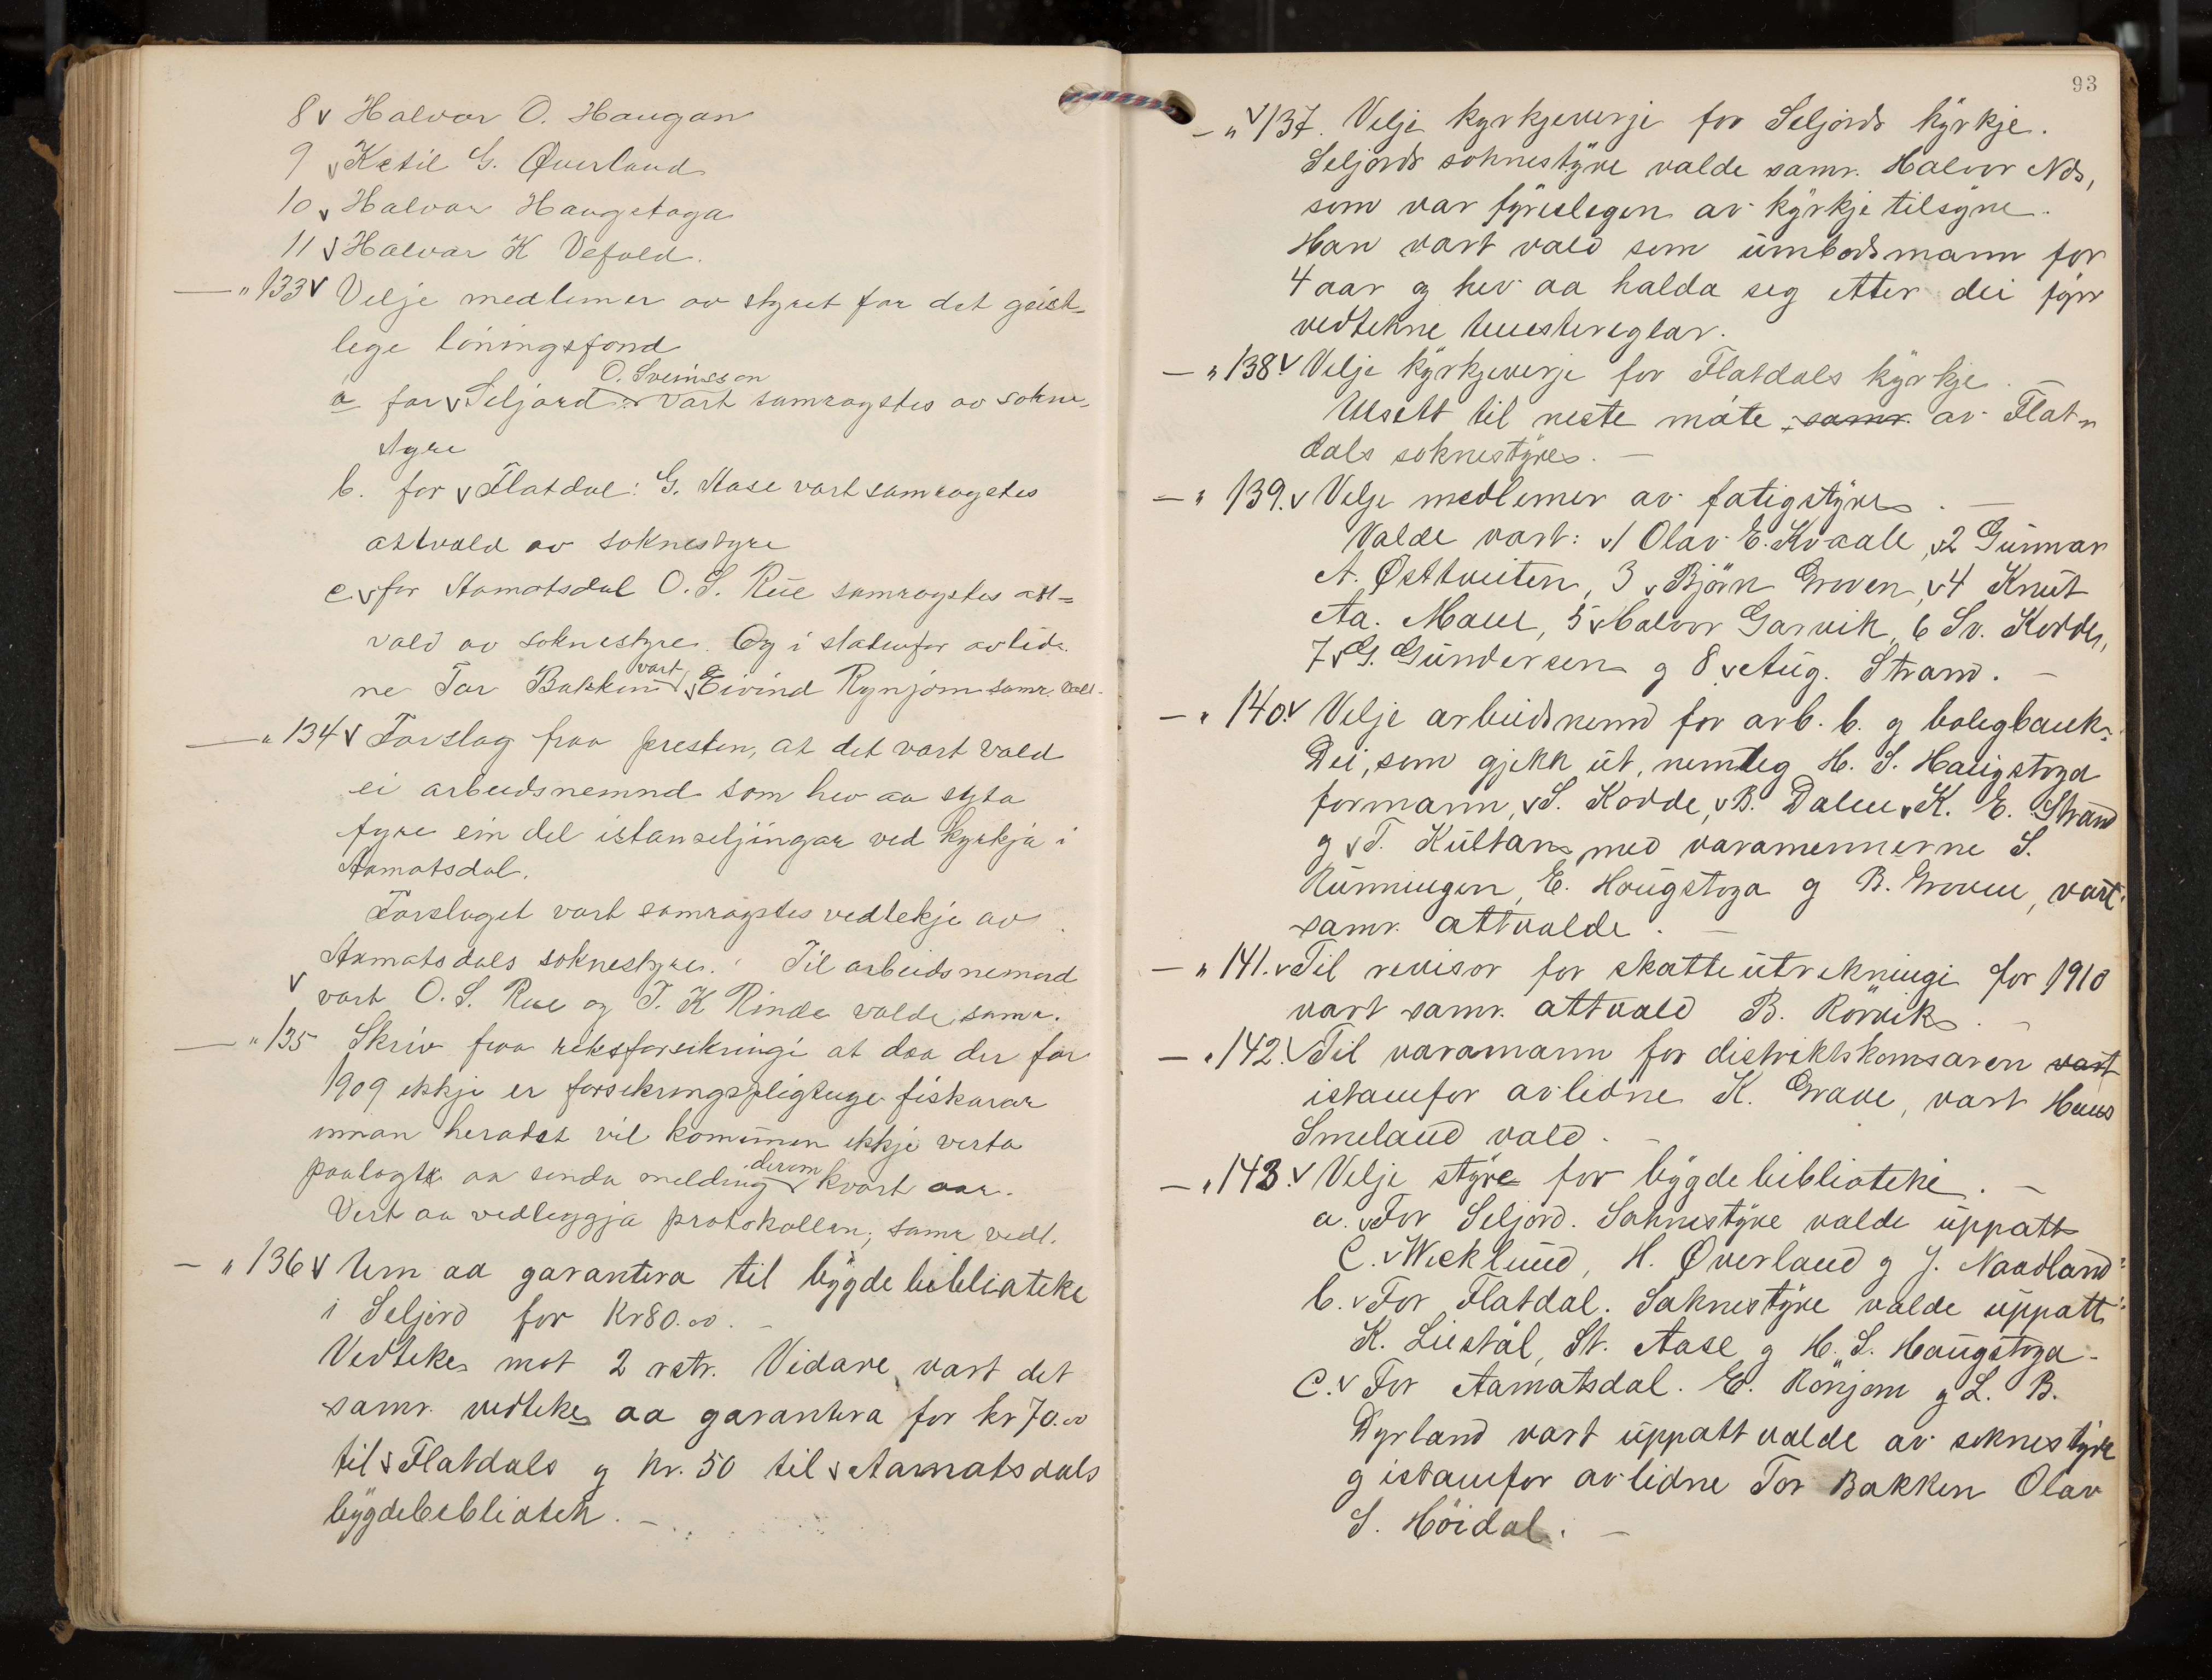 8 v Halvor O. Haugan
9 v Ketil G. Øverland
10 v Halvor Haugstoga
11 v Halvor K Vefald.
— „ 133 v Velje medlemer av styret for det geist-
lege löningsfond
O. Sveinsson
a for v Seljord: vart samrøystes av sokne-
styre
b. for v Flatdal: G. Aase vart samrøystes
attvald av soknestyre
c. v for Aamotsdal O. S. Rue samrøystes att=
vald av soknestyre. Og i stadenfor avlid-
ne Tor Bakken vart v Eivind Rynjom samr. vald.
— „ 134 v Forslag fraa presten, at det vart vald
ei arbeidsnemnd som hev aa syta
fyre ein del istanseljingar ved kyrkja i
Aamotsdal.
Forslaget vart samrøystes vedtekje av
Aamotsdals soknestyre. Til arbeidsnemnd
v vart O. S. Rue og T. K Rinde valde samr.
— „ 135 Skriv fraa riksforsikringi at daa der for
1909 ikkje er forsikringspligtuge fiskarar
innan heradet vil komunen ikkje verta
paalagt aa senda melding derom kvart aar.
Vert aa vedleggja protokollen; samr vedt.
— „ 136 v Um aa garantera til bygdebiblioteke
i Seljord for Kr 80.00. —
Vedteke mot 2 rstr. Vidare vart det
samr. vedteke aa garantera for kr 70.00
til v Flatdals og kr. 50 til v Aamotsdals
bygdebibliotek. —
93
— „ v 137. Velje kyrkjeverje for Seljords kyrkje.
Seljords soknestyre valde samr. Halvor Nds,
som var fyreslegen av kyrkjetilsyne.
Han vart vald som umbodsmann for
4 aar og hev aa halda seg etter dei fyrr
vedtekne tenestereglar.
— „ 138 v Velje kyrkjeverje for Flatdals kyrkje. —
Utsett til neste møte samr. av Flat-
dals soknestyre. —
— „ 139. v Velje medlemer av fatigstyre. —
Valde vart: v 1 Olav E. Kvaale, v 2 Gunnar
A. Østtveiten, 3 v Björn Groven, v 4 Knut
Aa. Moen, 5 v Halvor Garvik, 6 Sv. Kodde,
7 v G. Gundersen og 8 v Aug. Strand. —
— „ 140. v Velje arbeidsnemd for arb. b. og boligbank.
Dei, som gjekk ut, nemleg H. S. Haugstoga
formann, v S. Kodde, v B. Dalen v K. E. Strand
og v T. Kultan, med varamennerne S.
Nunningen, E. Haugstoga og B. Groven, vart
samr. attvalde. —
— „ 141. v Til revisor for skatteutrekningi for 1910
vart samr. attvald B. Rorvik. —
— „ 142. v Til varamann for distriktskomsaren vart
istaenfor avlidne K. Grave, vart Hans
Smeland vald. —
— „ 143. v Velje styre for bygdebiblioteki. —
a. v For Seljord. Soknestyre valde uppatt
C. v Wicklund, H. Øverland og J. Naadland
b. v For Flatdal. Soknestyre valde uppatt:
K. Liestøl, St. Aase og H. S. Haugstoga.
C. v For Aamotsdal. E. Rönjom og L. B.
Dyrland vart uppattvalde av soknestyre
og istaenfor avlidne Tor Bakken Olav
S. Höidal. —